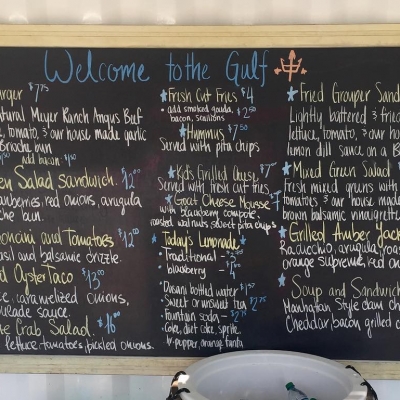 Welcome to the Gulf
urger $7.75
atural Meyer Ranch Angus Beef
e, tomato, & our house made garlic
Brioche bun
add bacon $1.50
en Salad sandwich. $12.00
anberries, red onions, arugula
che bun.
oncini and Tomatoes $12.00
asil and balsamic drizzle.
d Oyster Taco $13.00
ce, caramelized onions,
oulade sauce.
te Crab Salad. $16.00
lettuce, tomatoes, pickled onions.
Fresh Cut Fries $4
• add smoked gouda,
bacon, scallions $2.50
Hummus $7.50
Served with pita chips
Kids Grilled Cheese $7
Served with fresh cut fries
Goat Cheese Mousse 7
with blackberry compote,
roasted walnuts, sweet pita chips
Today's Lemonade
- Traditional -
- blackberry -
• Dasani bottled water $1.50
• Sweet or unsweet tea $2.75
• Fountain soda -
Coke, diet coke, sprite,
dr. pepper, orange fanta
Fried Grouper Sand
Lightly battered & fried
lettuce, tomato, & our hou
lemon dill sauce on a B
Mixed Green Salad
Fresh mixed greens with
tomatoes & our house made
brown balsamic vinaigrette
Grilled Amber Jack
Radicchio, arugula, roas
orange supreme, red on
Soup and Sandwic
Manhattan Style clam ch
Cheddar, bacon grilled c